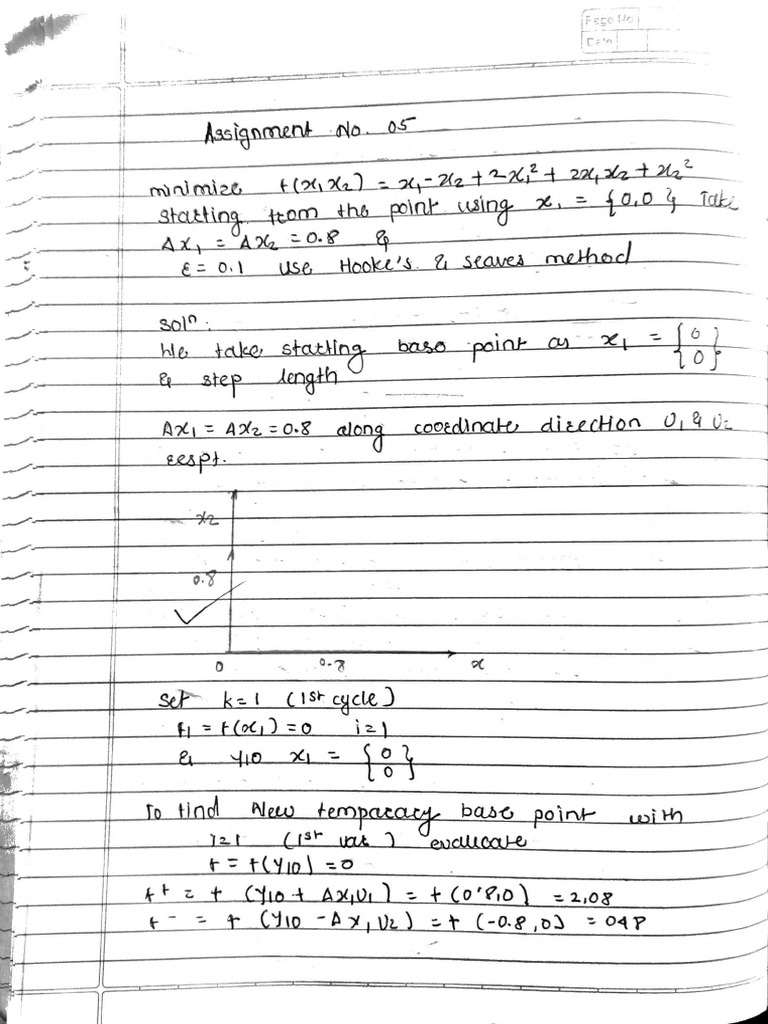 Page No
Date
Assignment No. 05
minimize f(x1x2) = x1-x2+2x1²+2x1x2+x2²
starting from the point using x1 = {0,0} Take
Δx1 = Δx2 = 0.8 &
ε = 0.1 use Hooke's & seaves method
solⁿ:
We take starting base point as x1 = {0 0}
& step length
Δx1 = Δx2 = 0.8 along coordinate direction U1 & U2
respt.
x2
0.8
0 0.8 x
Set k=1 (1st cycle)
f1 = f(x1) = 0 i=1
& y10 x1 = {0 0}
To find New temparary base point with
i=1 (1st var) evaluate
f = f(y10) = 0
f+ = f (y10 + Δx1U1) = f (0.8,0) = 2.08
f- = f (y10 - Δx1U2) = f (-0.8,0) = 048